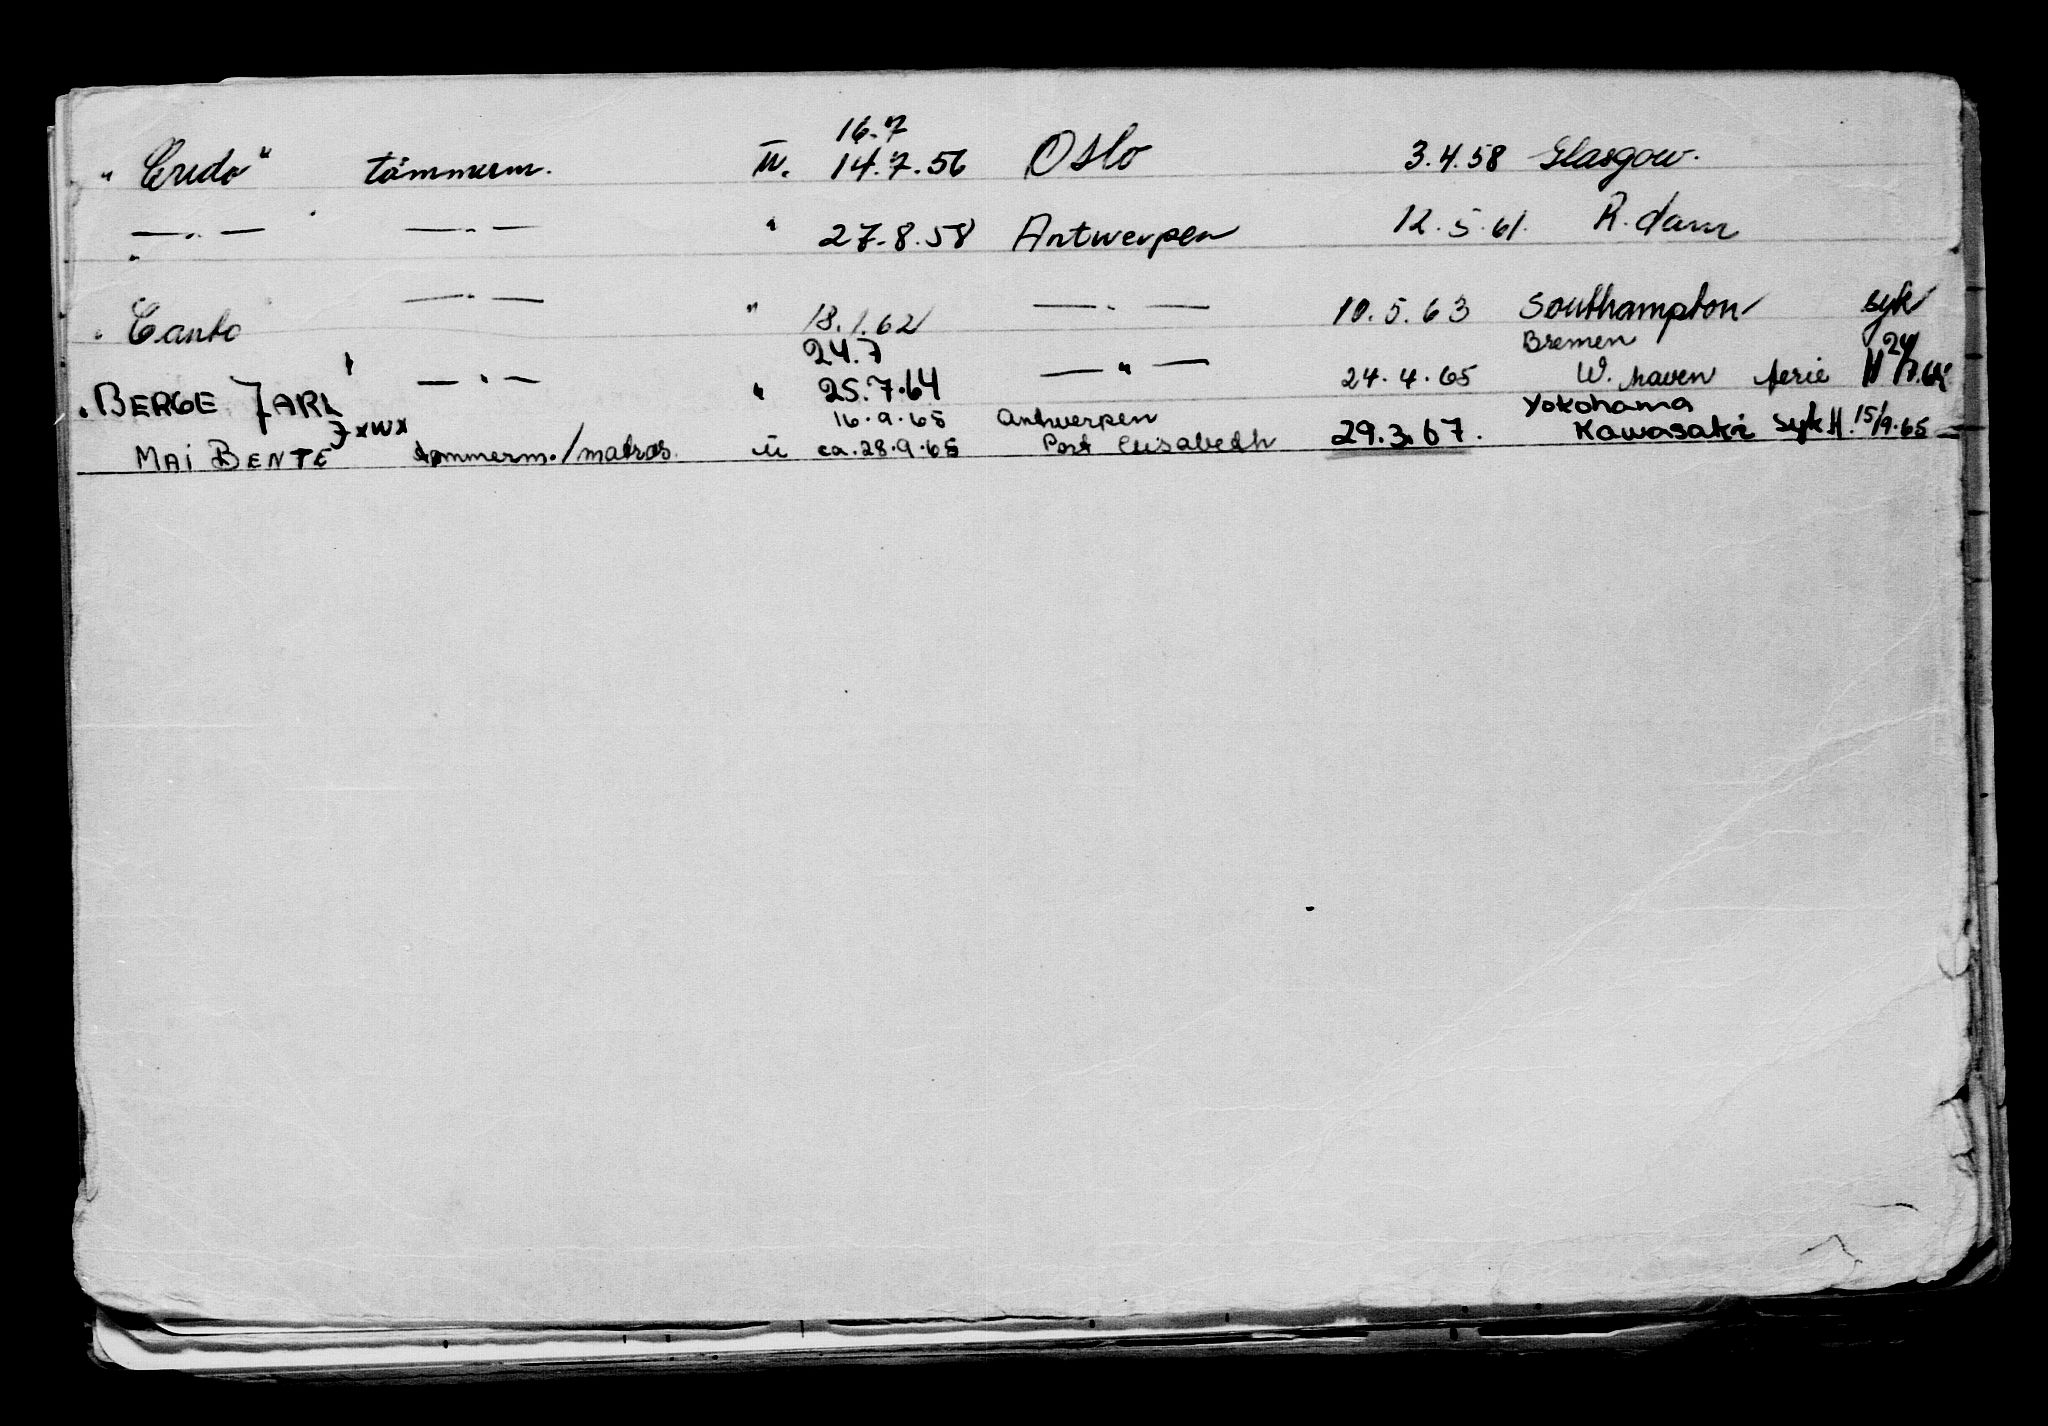 16.7
" Credo" tömmerm. ü. 14.7.56 Oslo 3.4.58 Glasgow.
— " — — " — " 27.8.58 Antwerpen 12.5.61. R.dam
" Canto — " — " 18.1.62 — " — 10.5.63 Southampton syk
24.7 Bremen
" BERGE JARL — " — " 25.7.64 — " — 24.4.65 W. haven ferie H 24/7.64
16.9.65 Antwerpen Yokohama
MAI BENTE JXWX tømmerm./matros. ü ca.28.9.65 Port Elisabeth 29.3.67. Kawasaki syk H. 15/9.65